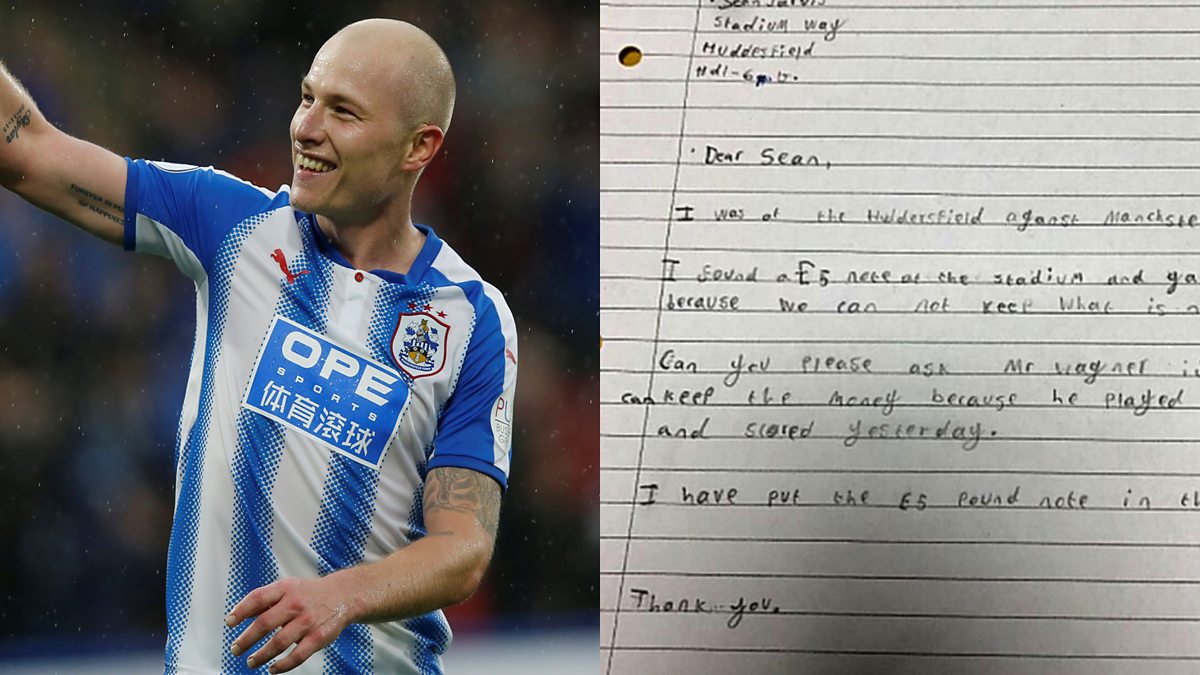 FOREVER IN MY
OF HAPPINESS
OPE
SPORTS
体育滚球
Sean Jarvis
Stadium way
Huddesfield
Hd1-6
Dear Sean,
I was at the Huldersfield aganst Manchste
I found a £5 note at the stadium and
because we can not keep what is
Can you please ask Mr Wagner
can keep the money because he played
and scored yesterday.
I have put the £5 Pound note in th
Thank you.